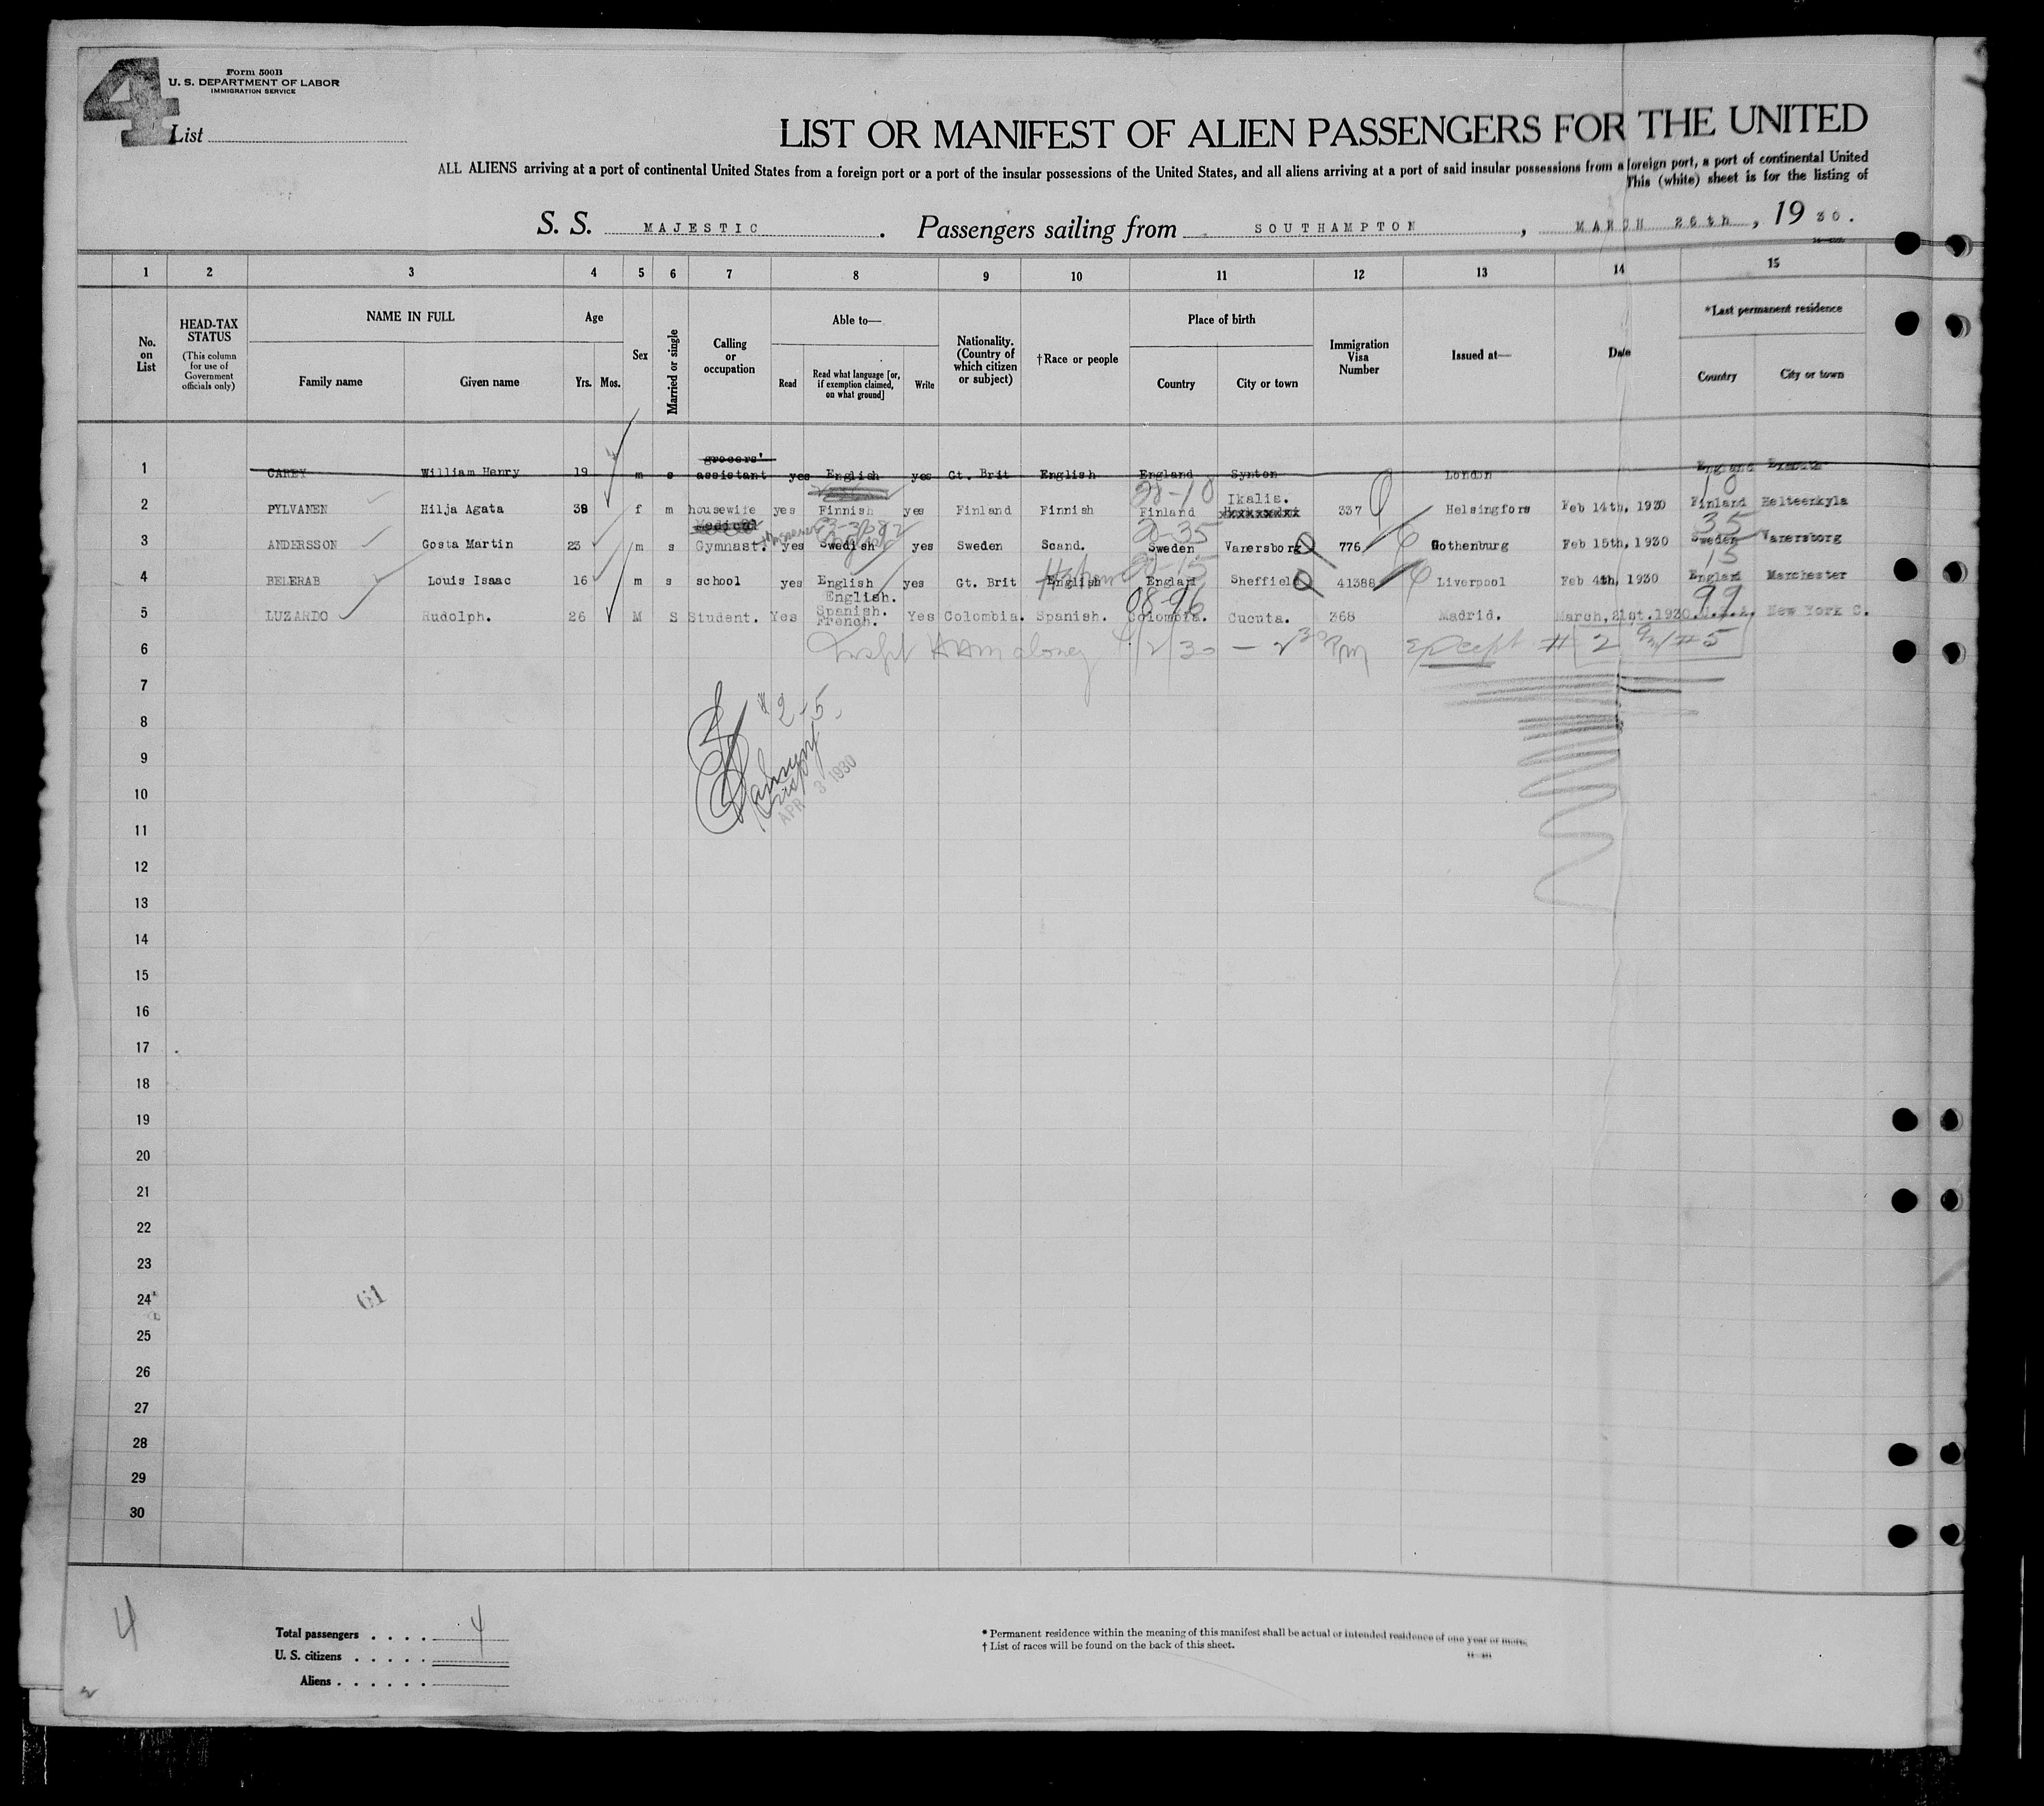 4
Form 500B
U. S. DEPARTMENT OF LABOR
IMMIGRATION SERVICE
List
LIST OR MANIFEST OF ALIEN PASSENGERS FOR THE UNITED
ALL ALIENS arriving at a port of continental United States from a foreign port or a port of the insular possessions of the United States, and all aliens arriving at a port of said insular possessions from a foreign port, a port of continental United
This (white) sheet is for the listing of
S. S. MAJESTIC . Passengers sailing from SOUTHAMPTON , MARCH 26th , 19 30.
1 2 3 4 5 6 7 8 9 10 11 12 13 14 15
No. on List
HEAD-TAX STATUS
(This column for use of Government officials only)
NAME IN FULL
Family name Given name
Age
Yrs. Mos.
Sex
Married or single
Calling or occupation
Able to—
Read
Read what language [or, if exemption claimed, on what ground]
Write
Nationality. (Country of which citizen or subject)
†Race or people
Place of birth
Country City or town
Immigration Visa Number
Issued at—
Date
*Last permanent residence
Country City or town
1 CAREY William Henry 19 m s grocers' assistant yes English yes Gt. Brit English England Synton London England
20-10 10
2 PYLVANEN Hilja Agata 38 f m housewife yes Finnish yes Finland Finnish Finland Ikalis. 337 Helsingfors Feb 14th, 1930 Finland Helteenkyla
20-35 35
3 ANDERSSON Gosta Martin 23 m s Medical Gymnast. yes Swedish yes Sweden Scand. Sweden Vanersborg 776 Gothenburg Feb 15th, 1930 Sweden Vanersborg
Hebrew 20-15 15
4 BELERAB Louis Isaac 16 m s school yes English yes Gt. Brit English England Sheffield 41388 Liverpool Feb 4th, 1930 England Manchester
08-96 99
5 LUZARDO Rudolph. 26 M S Student. Yes English. Spanish. French. Yes Colombia. Spanish. Colombia. Cucuta. 368 Madrid. March, 21st. 1930. U.S.A. New York C.
6 4/2/30 — 2 30 PM Except # 2 #5
7
# 2-5
8
9
APR 3 1930
10
11
12
13
14
15
16
17
18
19
20
21
22
23
24
61
25
26
27
28
29
30
4
Total passengers . . . . 4
U. S. citizens . . . . .
Aliens . . . . . .
* Permanent residence within the meaning of this manifest shall be actual or intended residence of one year or more.
† List of races will be found on the back of this sheet.